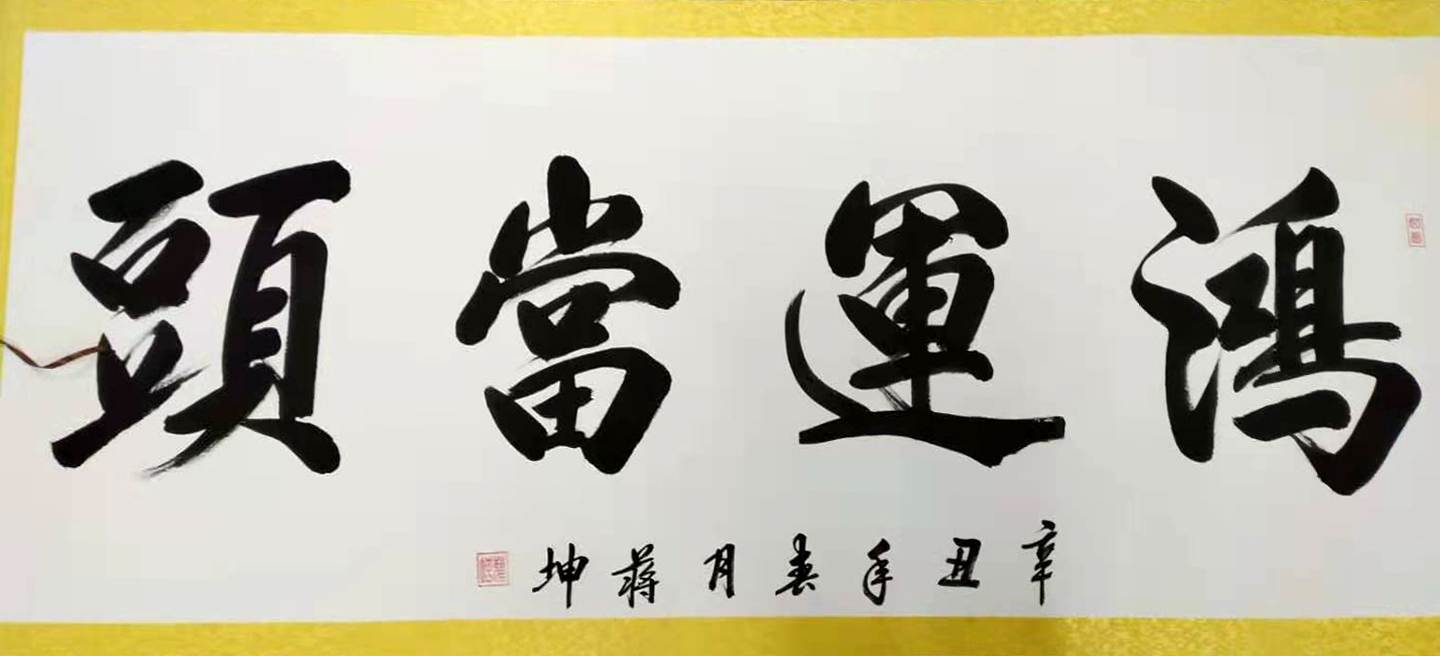 鴻運當頭
辛丑年春月蔣坤